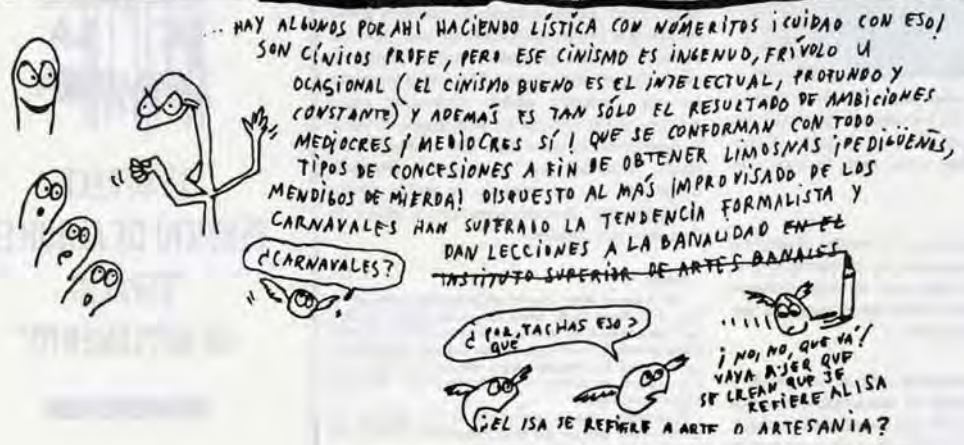 ... HAY ALGUNOS POR AHÍ HACIENDO LÍSTICA CON NÚMERITOS ¡CUIDAO CON ESO!
SON CÍNICOS PROFE, PERO ESE CINISMO ES INGENUO, FRÍVOLO U
OCASIONAL (EL CINISMO BUENO ES EL INTELECTUAL, PROFUNDO Y
CONSTANTE) Y ADEMÁS ES TAN SÓLO EL RESULTADO DE AMBICIONES
MEDIOCRES ¡MEDIOCRES SÍ! QUE SE CONFORMAN CON TODO
TIPOS DE CONCESIONES A FIN DE OBTENER LIMOSNAS ¡PEDIGÜEÑOS,
MENDIGOS DE MIERDA! DISPUESTO AL MAS IMPROVISADO DE LOS
CARNAVALES HAN SUPERADO LA TENDENCIA FORMALISTA Y
DAN LECCIONES A LA BANALIDAD EN EL
INSTITUTO SUPERIOR DE ARTES BANALES
¿CARNAVALES?
¿POR QUE TACHAS ESO?
¡NO, NO, QUE VA!
VAYA A SER QUE
SE CREAN QUE SE
REFIERE AL ISA
¿EL ISA SE REFIERE A ARTE O ARTESANÍA?